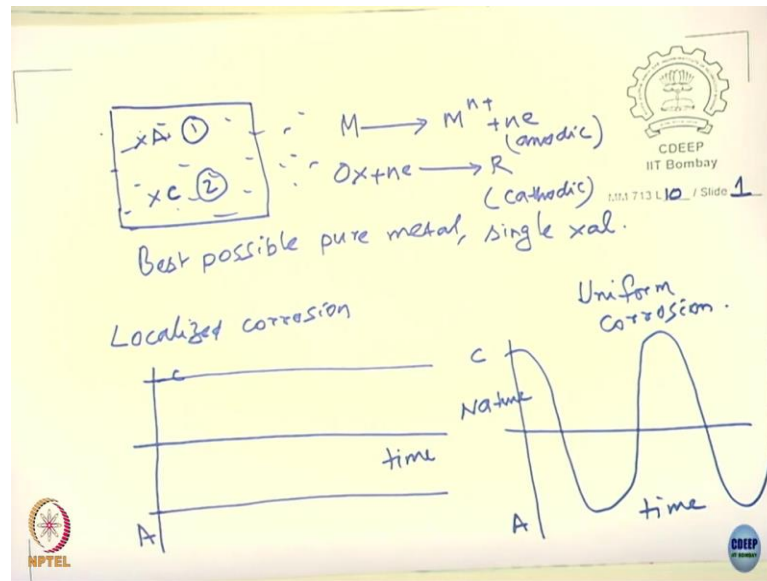 xA ①
xC ②
M ⟶ Mⁿ⁺ + ne
(anodic)
Ox + ne ⟶ R
(Cathodic)
CDEEP
IIT Bombay
MM 713 L 10 / Slide 1
Best possible pure metal, single xal.
Localized corrosion
Uniform
corrosion.
C
time
A
C
Nature
A
time
NPTEL
CDEEP
IIT BOMBAY